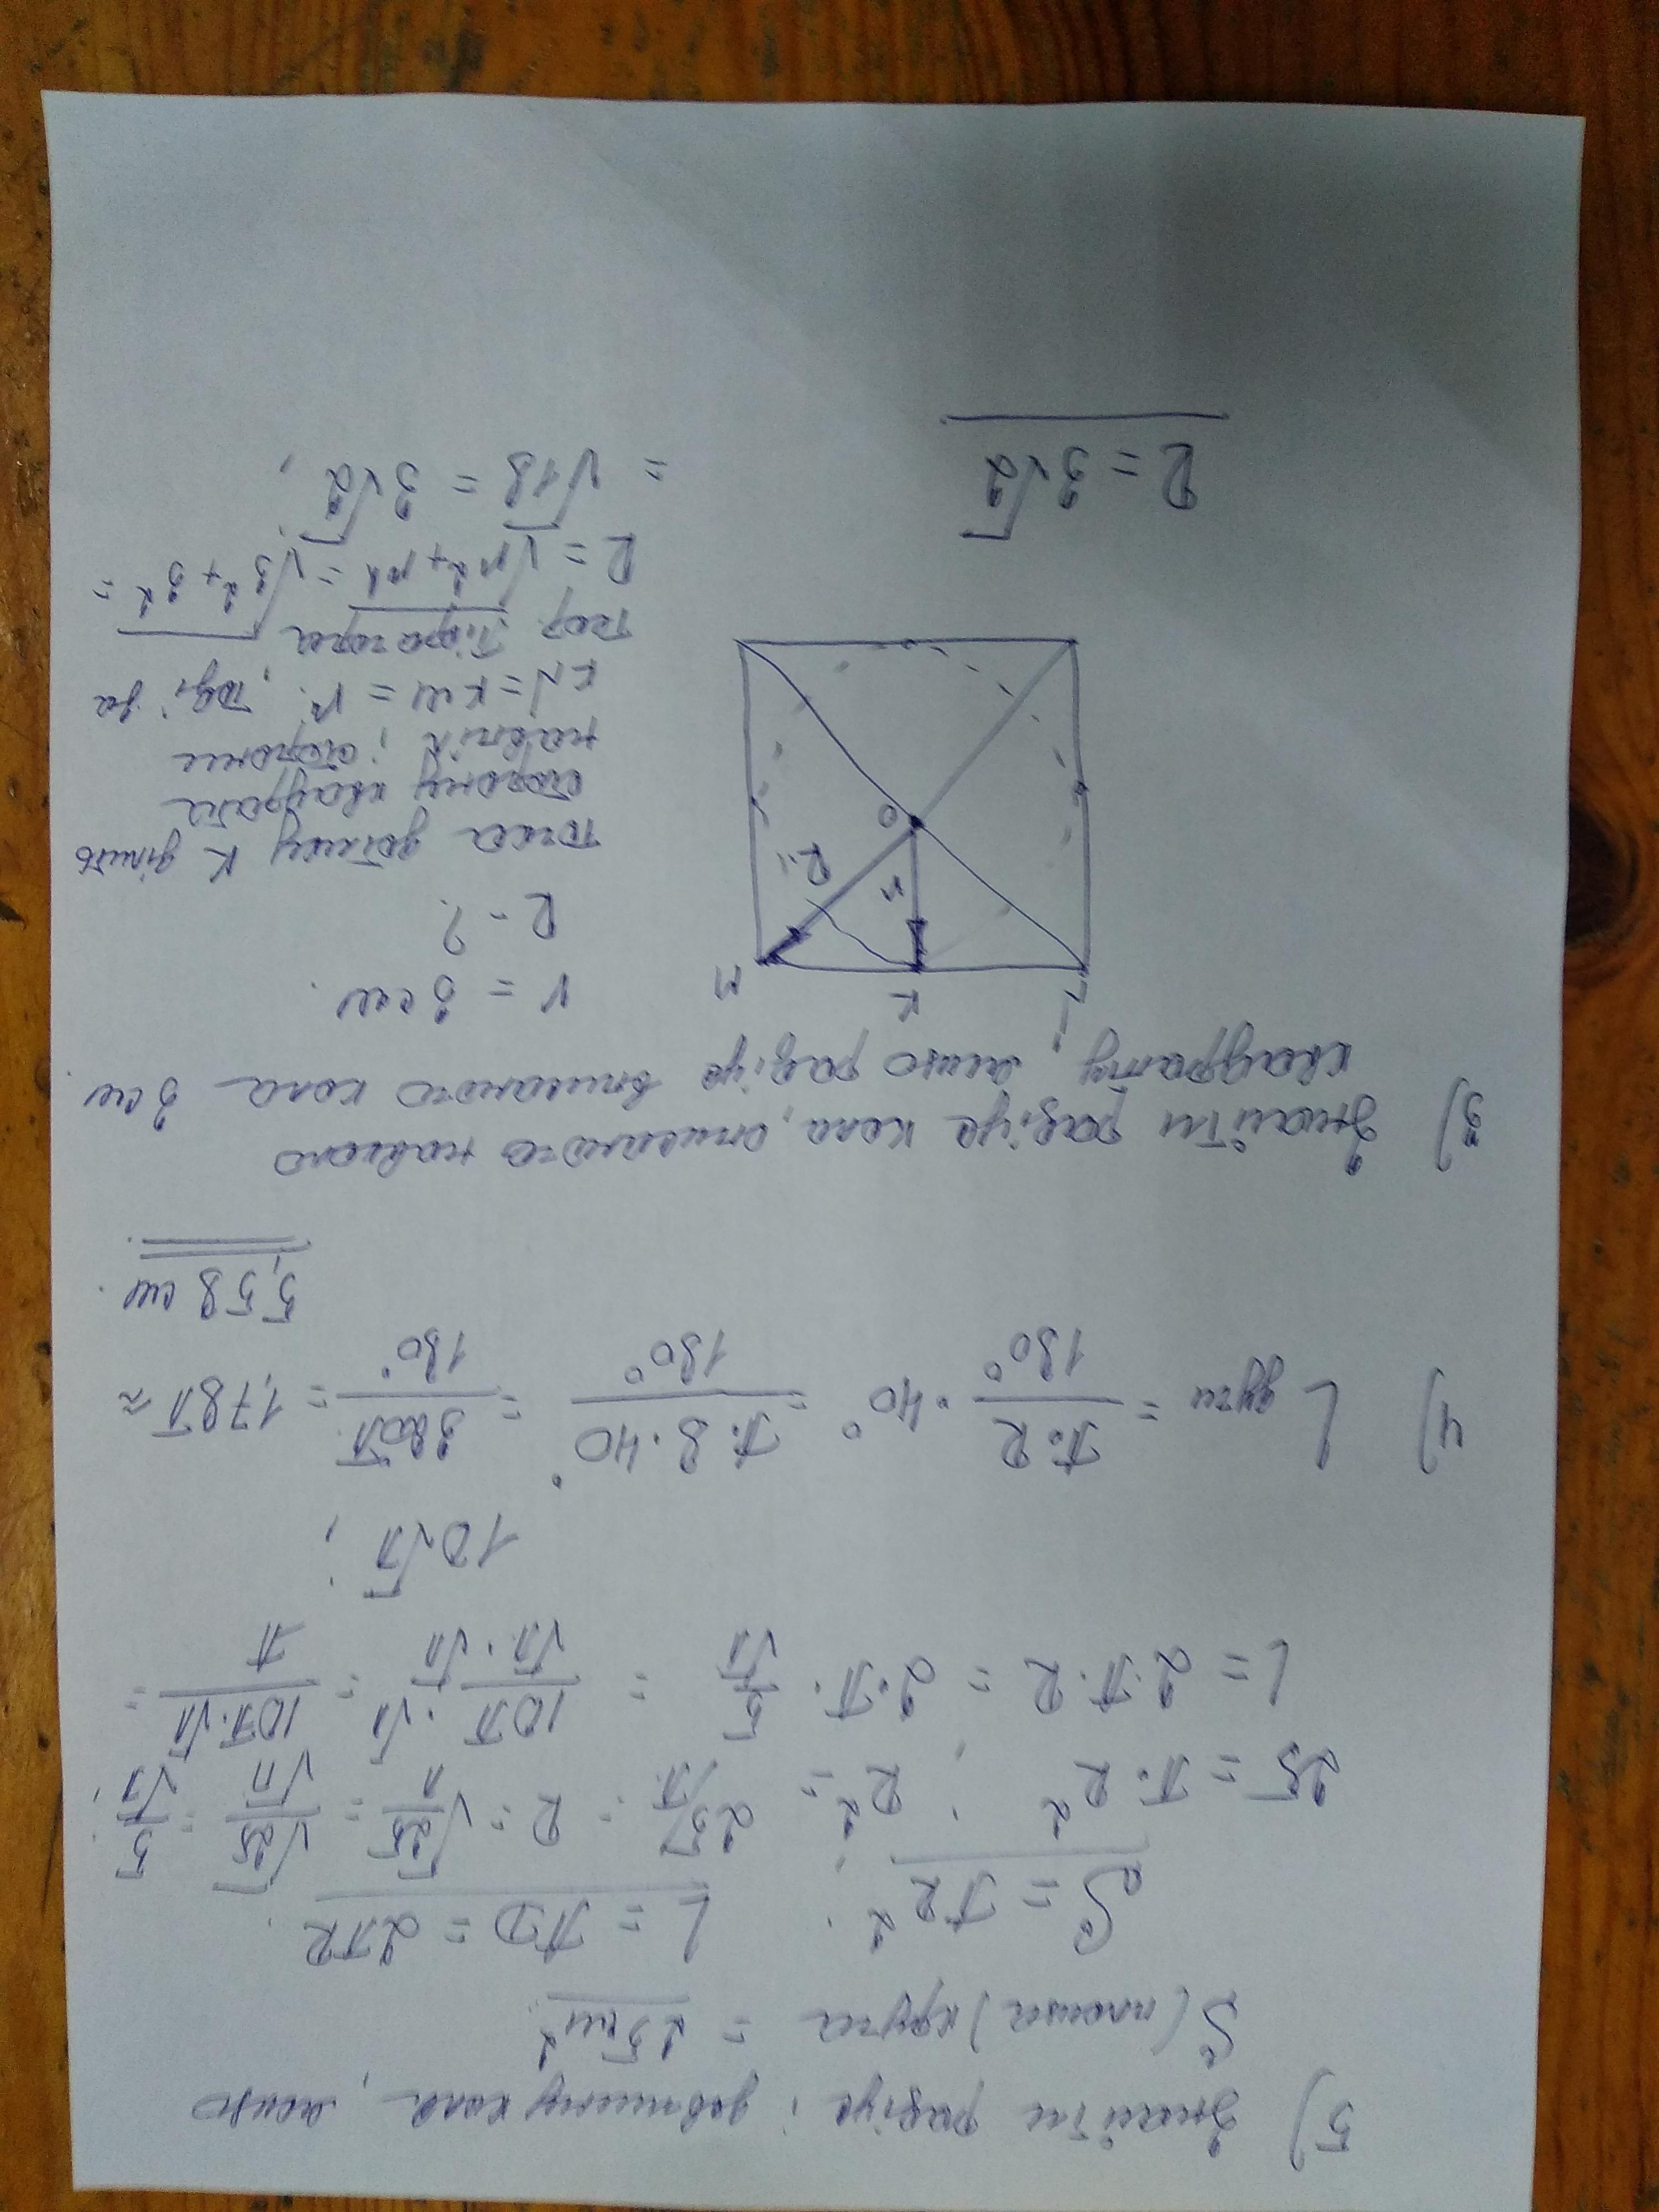 5) Знайти радіус і довжину кола, якщо
S (площа) круга = 25 см².
S = πR²; L = πD = 2πR.
25 = π·R²; R² = 25/π = R = √25/π = √25/√π = 5/√π;
L = 2·π·R = 2·π·5/√π = 10π/√π·√π · √π = 10π·√π/π =
10√π;
4) L дуги = π·R/180° · 40° = π·8·40°/180° = 320π/180° = 1,78π ≈
5,58 см.
3) Знайти радіус кола, описаного навколо
квадрату, якщо радіус вписаного кола 3 см.
K M
r = 3 см.
R - ?
r R
O
точка дотику K ділить
сторону квадрата
навпіл і сторони
KN = KM = r. тоді за
теор. Піфагора
R = √r² + r² = √3² + 3² =
= √18 = 3√2;
R = 3√2